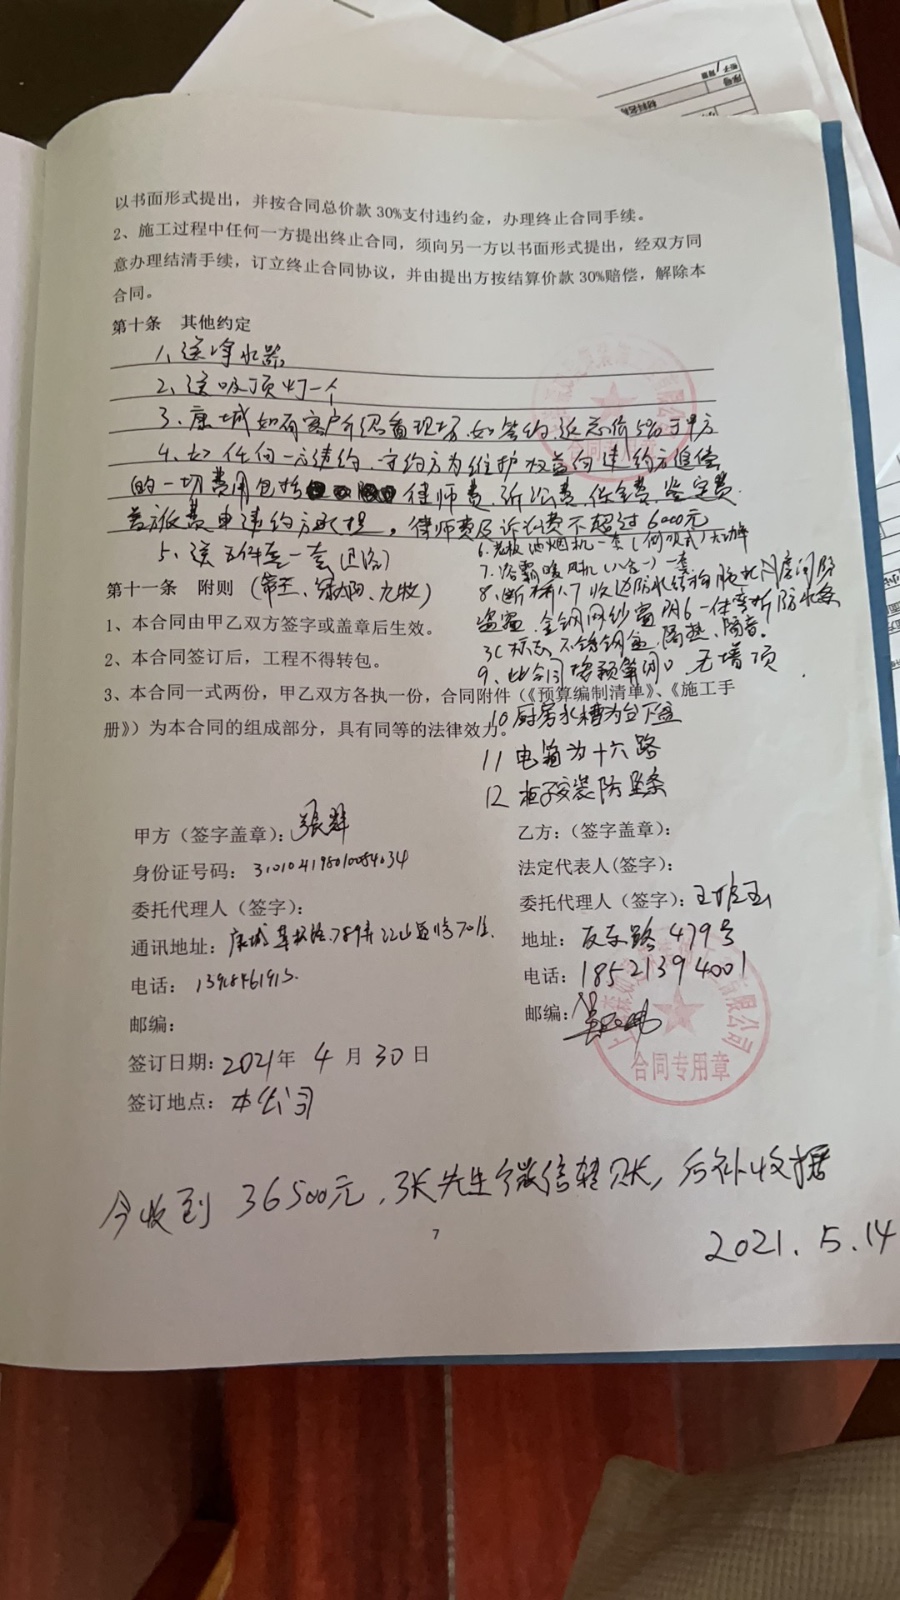 以书面形式提出，并按合同总价款30%支付违约金，办理终止合同手续。
2、施工过程中任何一方提出终止合同，须向另一方以书面形式提出，经双方同
意办理结清手续，订立终止合同协议，并由提出方按结算价款30%赔偿，解除本
合同。
第十条 其他约定
1、送净水器。
2、送吸顶灯一个
3、康城如有客户介绍看现场，如签约，返总价5%于甲方
4、如任何一方违约，守约方为维护权益向违约方追偿
的一切费用包括 律师费、诉讼费、保全费、鉴定费、
差旅费由违约方承担。律师费及诉讼费不超过6000元
5、送五件套一套
6、老板油烟机一套(侧吸式)大功率
7、浴霸暖风机(八合一)一套
第十一条 附则
1、本合同由甲乙双方签字或盖章后生效。
8、断桥1.7
盗窗，金钢网纱窗 一体 折 防水条
2、本合同签订后，工程不得转包。
3C标志，不锈钢盒，隔热、隔音。
9、此合同按预算 无增项
3、本合同一式两份，甲乙双方各执一份，合同附件（《预算编制清单》、《施工手
册》）为本合同的组成部分，具有同等的法律效力。
10 厨房水槽为台下盆
11 电箱为十六路
12 柜子安装防 条
甲方（签字盖章）：张
乙方：（签字盖章）：
身份证号码：
法定代表人(签字)：
委托代理人（签字）：
委托代理人（签字）：王
通讯地址：康城莘松路789弄
地址： 479号
电话：
电话：18521394001
邮编：
邮编：
签订日期：2021年 4 月 30 日
合同专用章
签订地点：本公司
今收到 36500元，张先生 微信转账，后补收据
7
2021.5.14